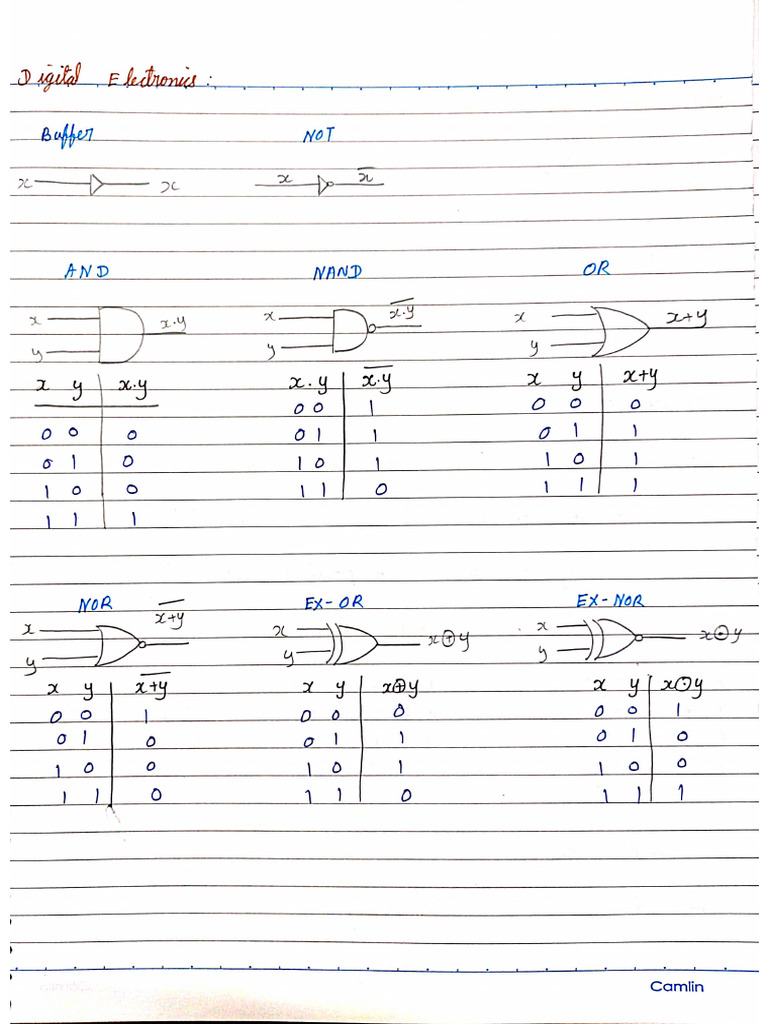 Digital Electronics:
Buffer NOT
x x x x̅
AND NAND OR
x x·y x x̅·̅y̅ x x+y
y y y
x y x·y x. y x̅·̅y̅ x y x+y
0 0 1 0 0 0
0 0 0 0 1 1 0 1 1
0 1 0 1 0 1 1 0 1
1 0 0 1 1 0 1 1 1
1 1 1
NOR EX-OR EX-NOR
x x̅+̅y̅ x x⊕y x x⊙y
y y y
x y x̅+̅y̅ x y x⊕y x y x⊙y
0 0 1 0 0 0 0 0 1
0 1 0 0 1 1 0 1 0
1 0 0 1 0 1 1 0 0
1 1 0 1 1 0 1 1 1
Camlin